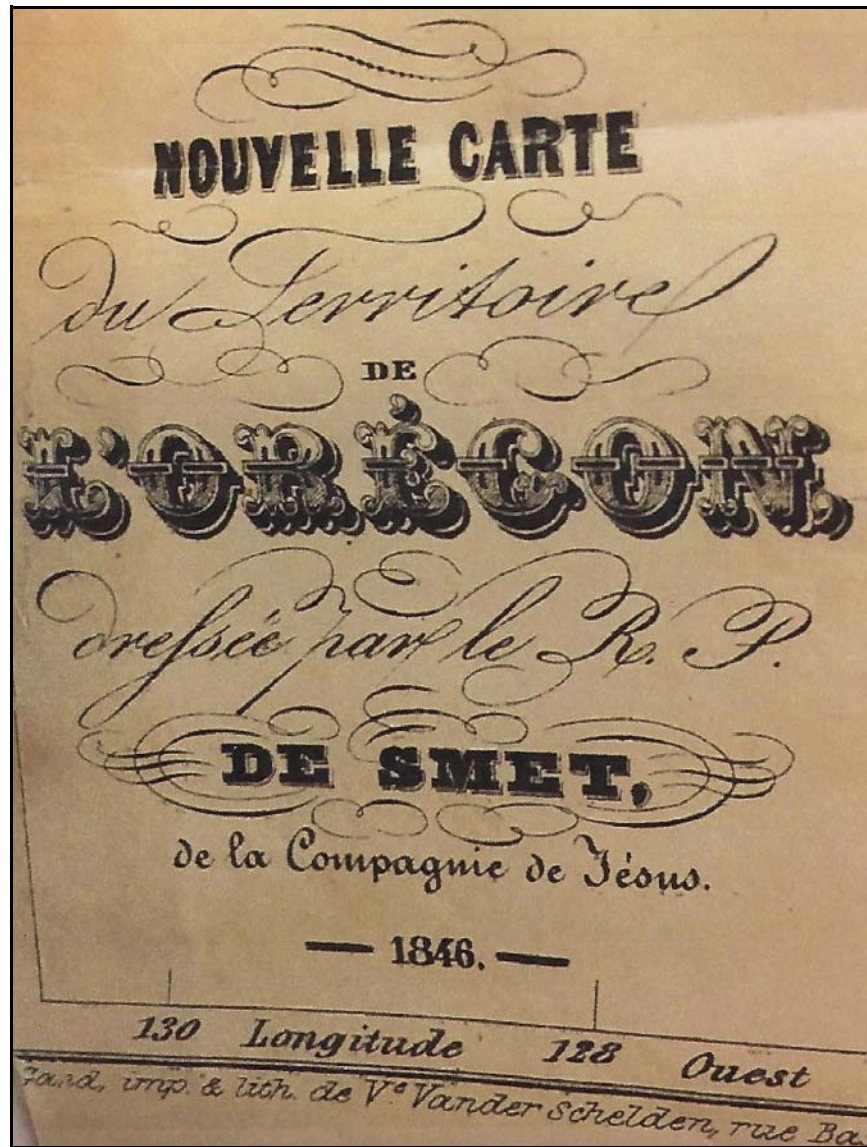 NOUVELLE CARTE
du Territoire
DE
L'ORÉGON,
dreſsée par le R. P.
DE SMET,
de la Compagnie de Jésus.
— 1846. —
130 Longitude 128 Ouest
Gand, imp. & lith. de Vᵉ Vander Schelden, rue Ba